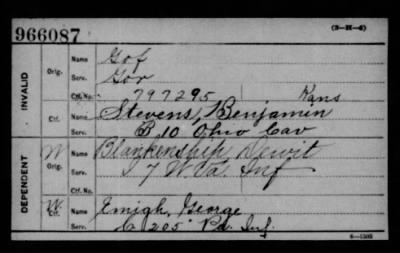 966087 (3—H—6)
INVALID
Orig. Name Gof
Serv. Gov
Ctf. No. 797295 Kans
Ctf. Name Stevens, Benjamin
Serv. B 10 Ohio Cav
DEPENDENT
W Orig. Name Blankenship, Dewit
Serv. I 7 W Va. Inf
Ctf. No.
W Ctf. Name Emigh, George
Serv. C 205 Pa. Inf.